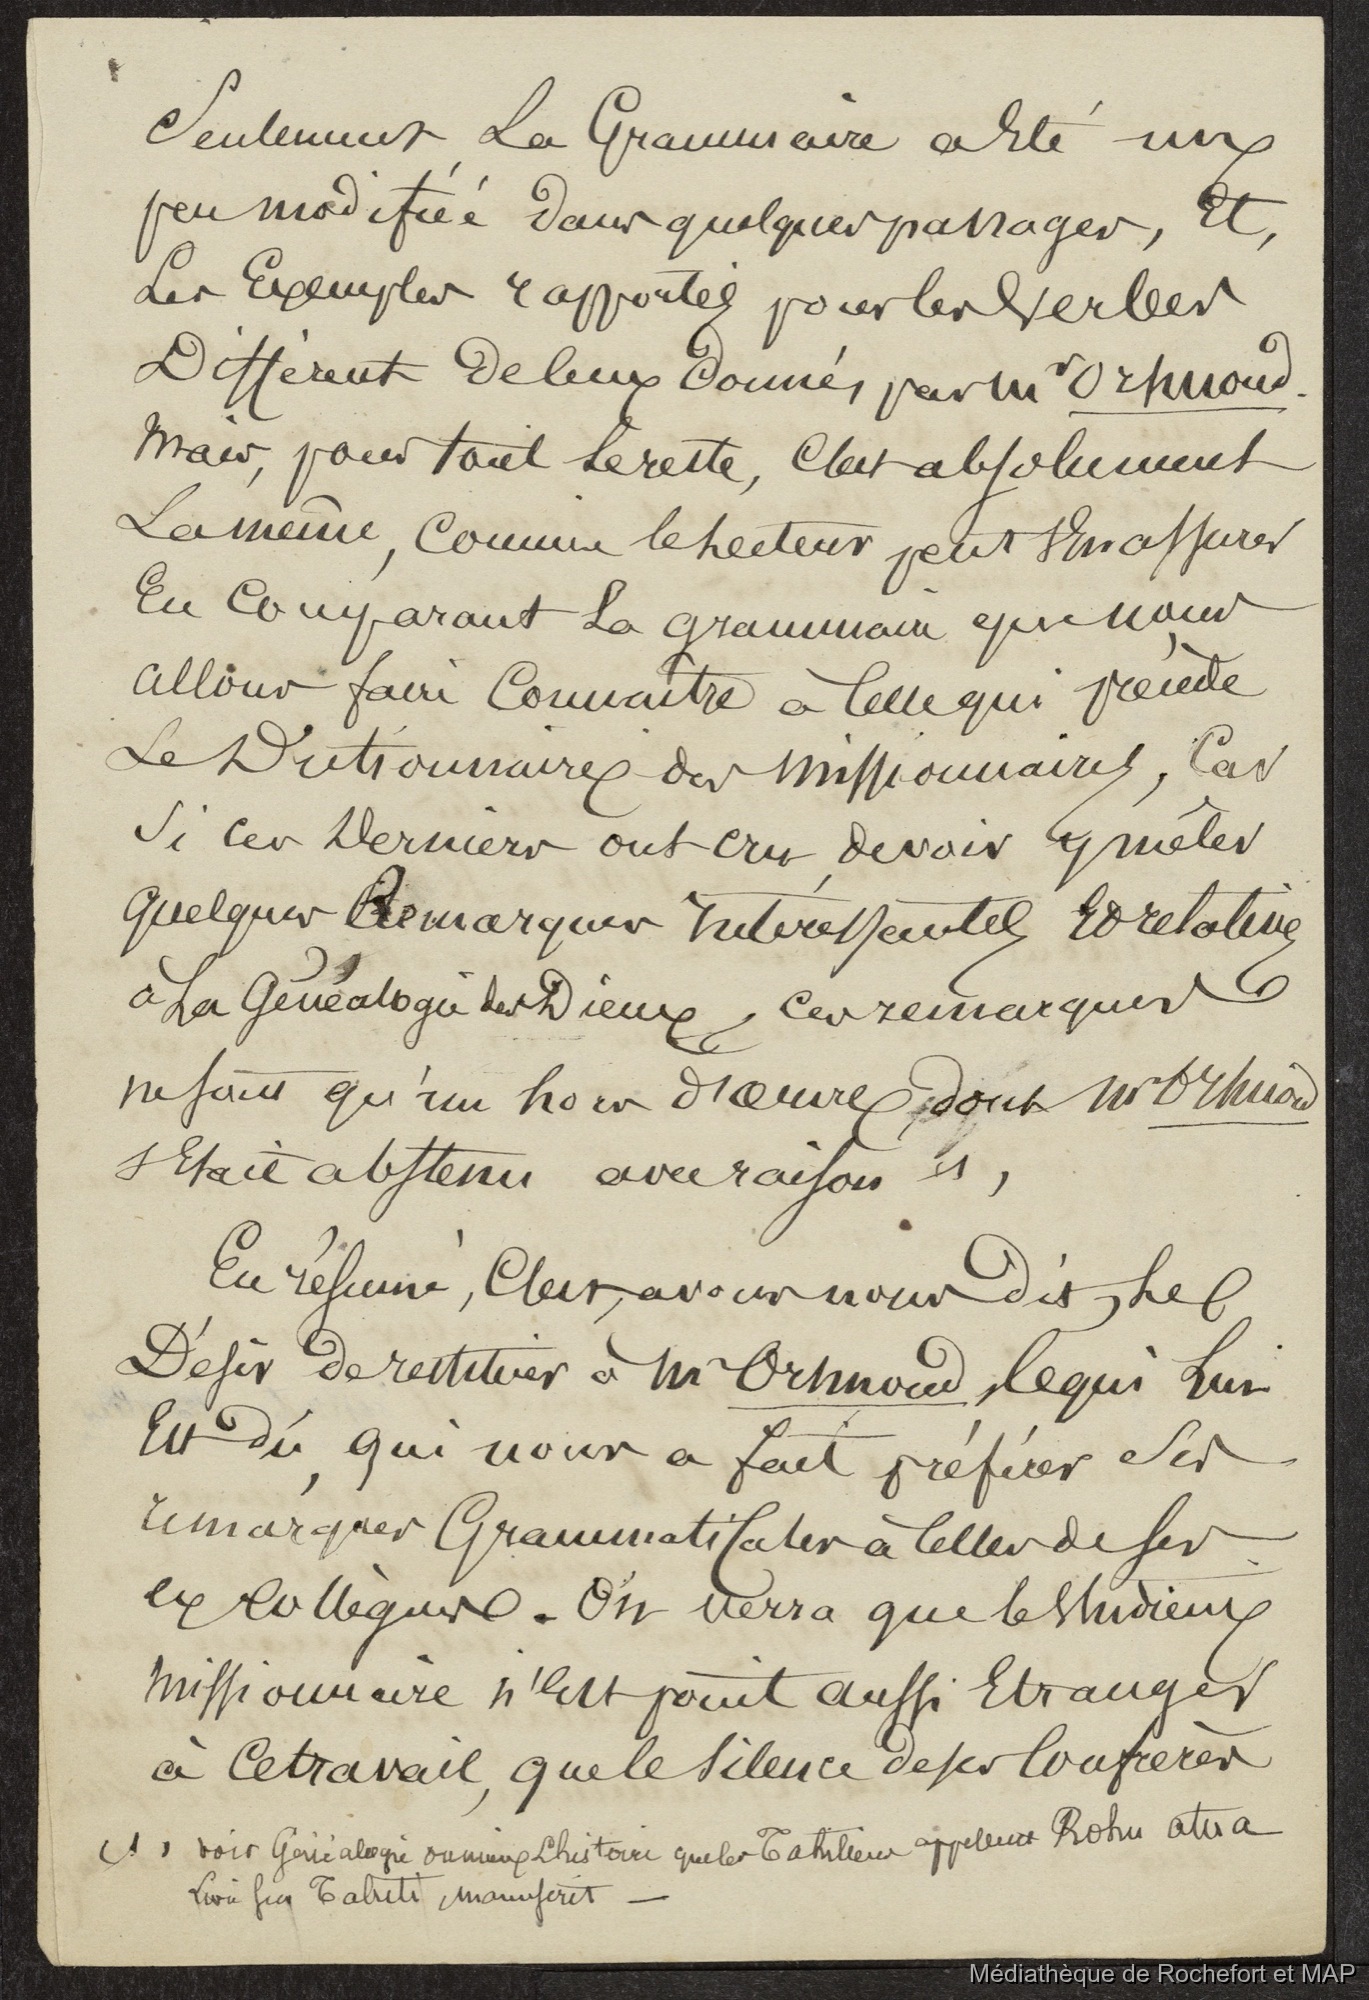 Seulement, La Grammaire a Eté un
peu modifiée dans quelques passages, Et,
Les Exemples rapportés pour les Verbes
Diffèrent de ceux donnés par Mr Orhmond.
Mais, pour tout le reste, C'est absolument
La même, Comme le Lecteur peut s'En assurer
En Comparant La grammaire que nous
allons faire Connaître à Celle qui précède
Le Dictionnaire des Missionnaires, Car
Si ces Derniers ont cru devoir y mêler
quelques Remarques Intéressantes Et relatives
à La Généalogie des Dieux, ces remarques
ne sont qu'un hors d'œuvre, dont Mr Orhmond
s'Etait abstenu avec raison (1),
En résumé, C'est, avons nous dit, Le
Désir de restituer à Mr Orhmond, Ce qui Lui
Est dû, qui nous a fait préférer Ses
remarques Grammaticales à Celles de Ses
ex Collègues. On verra que le Studieux
Missionnaire n'Est point aussi Etranger
à Ce travail, que le Silence de ses Confrères
(1) voir Généalogie ou mieux L'histoire que les Tahitiens appellent Rohu atua
Livre sur Tahiti, Manuscrit —
Médiathèque de Rochefort et MAP